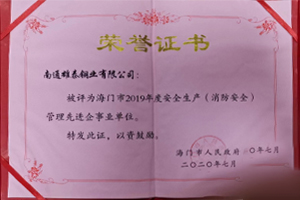 荣誉证书
南通雄泰钢业有限公司：
被评为海门市2019年度安全生产（消防安全）
管理先进企事业单位。
特发此证，以资鼓励。
海门市人民政府
二〇二〇年七月